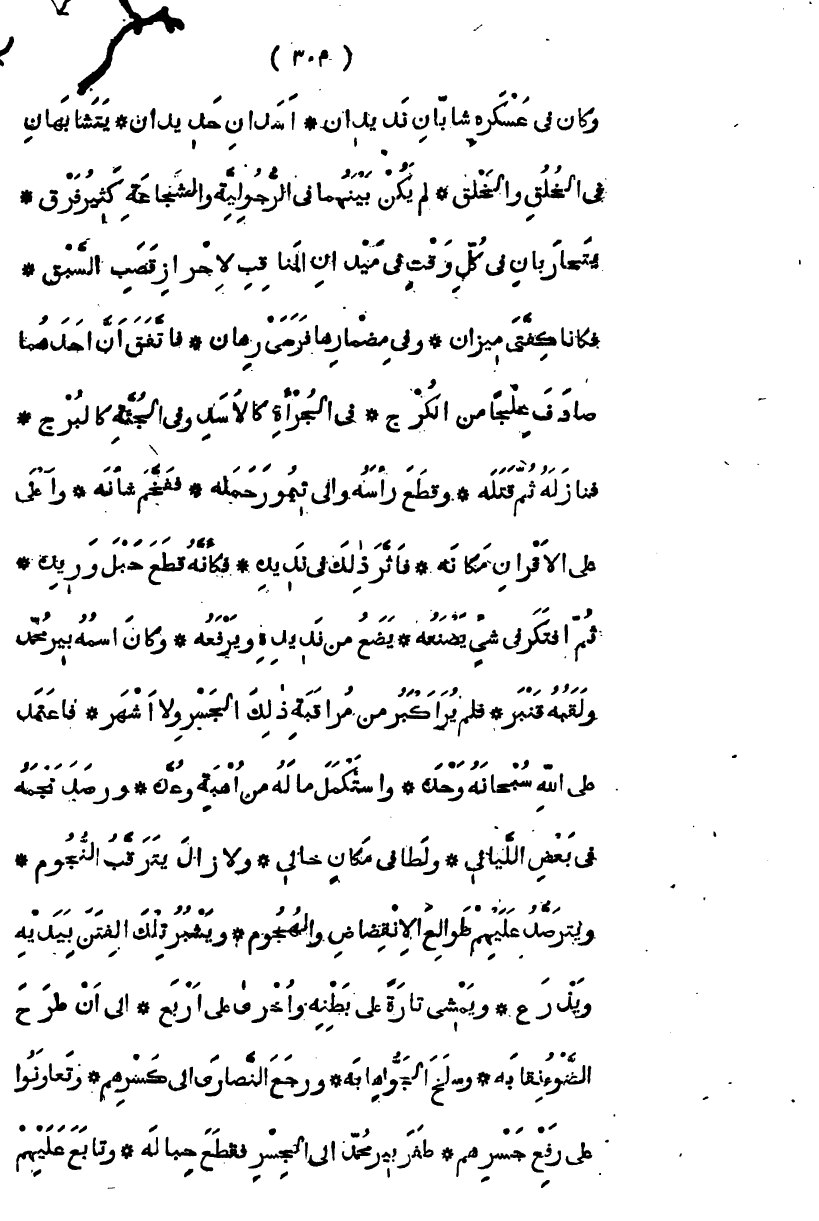 ( ٣٠٩ )
وكان فى عَسْكَرِه شابّانِ نَدِيدان * اَسَدانِ حَدِيدان * يَتَشابَهانِ
فى الخُلُقِ والخَلْق * لم يَكُنْ بَيْنَهما فى الرُّجُولِيَّةِ والشَجاعَةِ كَثِيرُ فَرْق *
يتَحارَبانِ فى كُلِّ وَقْتٍ فى مَيْدانِ المَناقِبِ لِاحْرازِ قَصَبِ السَّبْق *
فكانا كِفَّتَىْ مِيزان * وفى مِضْمارِها فَرَسَىْ رِهان * فاتَّفَقَ اَنَّ احَدَهُما
صادَفَ عِلْجًا من الكُرْج * فى الجُرْأةِ كالاَسَدِ وفى الجُثَّةِ كالبُرْج *
فنازَلَهُ ثُمّ قَتَلَه * وقطَعَ رأسَهُ والى تِيمُورَ حَمَله * ففَخَّمَ شأنَه * واَعْلَى
على الاَقْرانِ مَكانَه * فاَثَّرَ ذٰلِكَ فى نَدِيدِه * فكأنَّهُ قطَعَ حَبْلَ وَرِيدِه *
ثُمّ افتَكَرَ فى شىٍّ يَصْنَعُه * يَضَعُ من نَدِيدِهِ ويَرْفَعُه * وكانَ اسمُهُ بِير مُحَمَّد
ولَقَبُهُ قَنْبَر * فلم يُرَ اَكْبَرُ من مُراقَبَةِ ذٰلِكَ الجَسْرِ ولا اَشْهَر * فاعتَمَدَ
على اللّهِ سُبْحانَهُ وَحْدَه * واستَكْمَلَ مالَهُ من اُهْبَةٍ وعُدَّه * ورصَدَ نَجْمَهُ
فى بَعْضِ اللَّيالِى * ولَطا فى مَكانٍ خالِى * ولا زالَ يَتَرَقَّبُ النُّجُوم *
ويترَصَّدُ عَلَيْهِمْ طَوالِعَ الاِنْقِضاضِ والهُجُوم * ويَشْبُرُ تِلْكَ الفِتَنَ بِيَدَيْهِ
ويَذْرَع * ويَمْشِى تارَةً على بَطْنِه واُخْرىٰ على اَرْبَع * الى اَنْ طَرَحَ
الضَوْءُ نِقابَه * وسلَخَ الجَوُّ اِهابَه * ورجَعَ النَّصارَى الى كَسْرِهم * وتَعاوَنُوا
على رَفْعِ جَسْرِهم * طفَرَ بِير مُحَمَّد الى الجِسْرِ فقطَعَ حِبالَه * وتابَعَ عَلَيْهِمْ